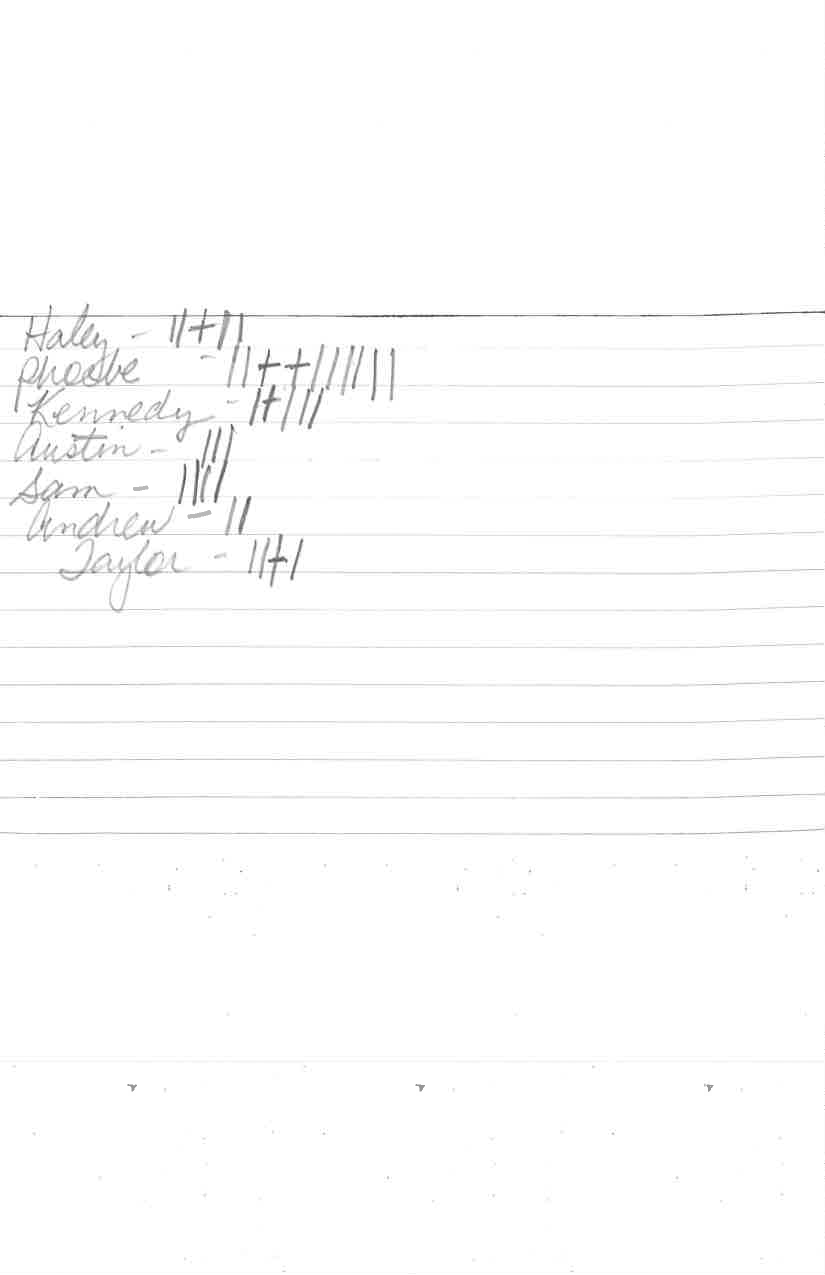 Haley - ||+||
Phoebe - ||++|||||||
Kennedy - |+|||
Austin - |||
Sam - ||||
Andrew - ||
Taylor - ||+|